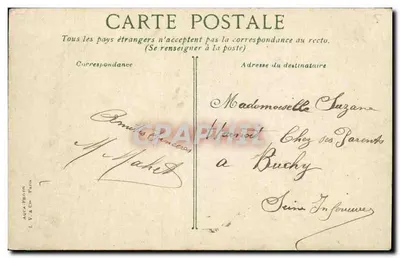 CARTE POSTALE
Tous les pays étrangers n'acceptent pas la correspondance au recto.
(Se renseigner à la poste)
Correspondance
Adresse du destinataire
M Mahet
Mademoiselle Suzane
Chez ses Parents
a Buchy
Seine Inférieure
CPARAMA
5